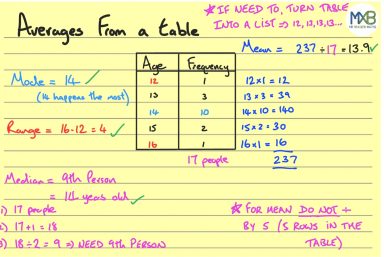 Averages From a table
* IF NEED TO, TURN TABLE
INTO A LIST ⇒ 12,13,13...
MXB
Mean = 237 ÷ 17 = 13.9 ✓
Mode = 14 ✓
(14 happens the most)
Range = 16-12 = 4 ✓
Age Frequency
12 1 12×1 = 12
13 3 13×3 = 39
14 10 14×10 = 140
15 2 15×2 = 30
16 1 16×1 = 16
17 people 237
Median = 9th Person
= 14 years old ✓
1) 17 people
2) 17+1 = 18
3) 18÷2 = 9 ⇒ NEED 9th PERSON
* FOR MEAN DO NOT ÷
BY 5 (5 ROWS IN THE
TABLE)